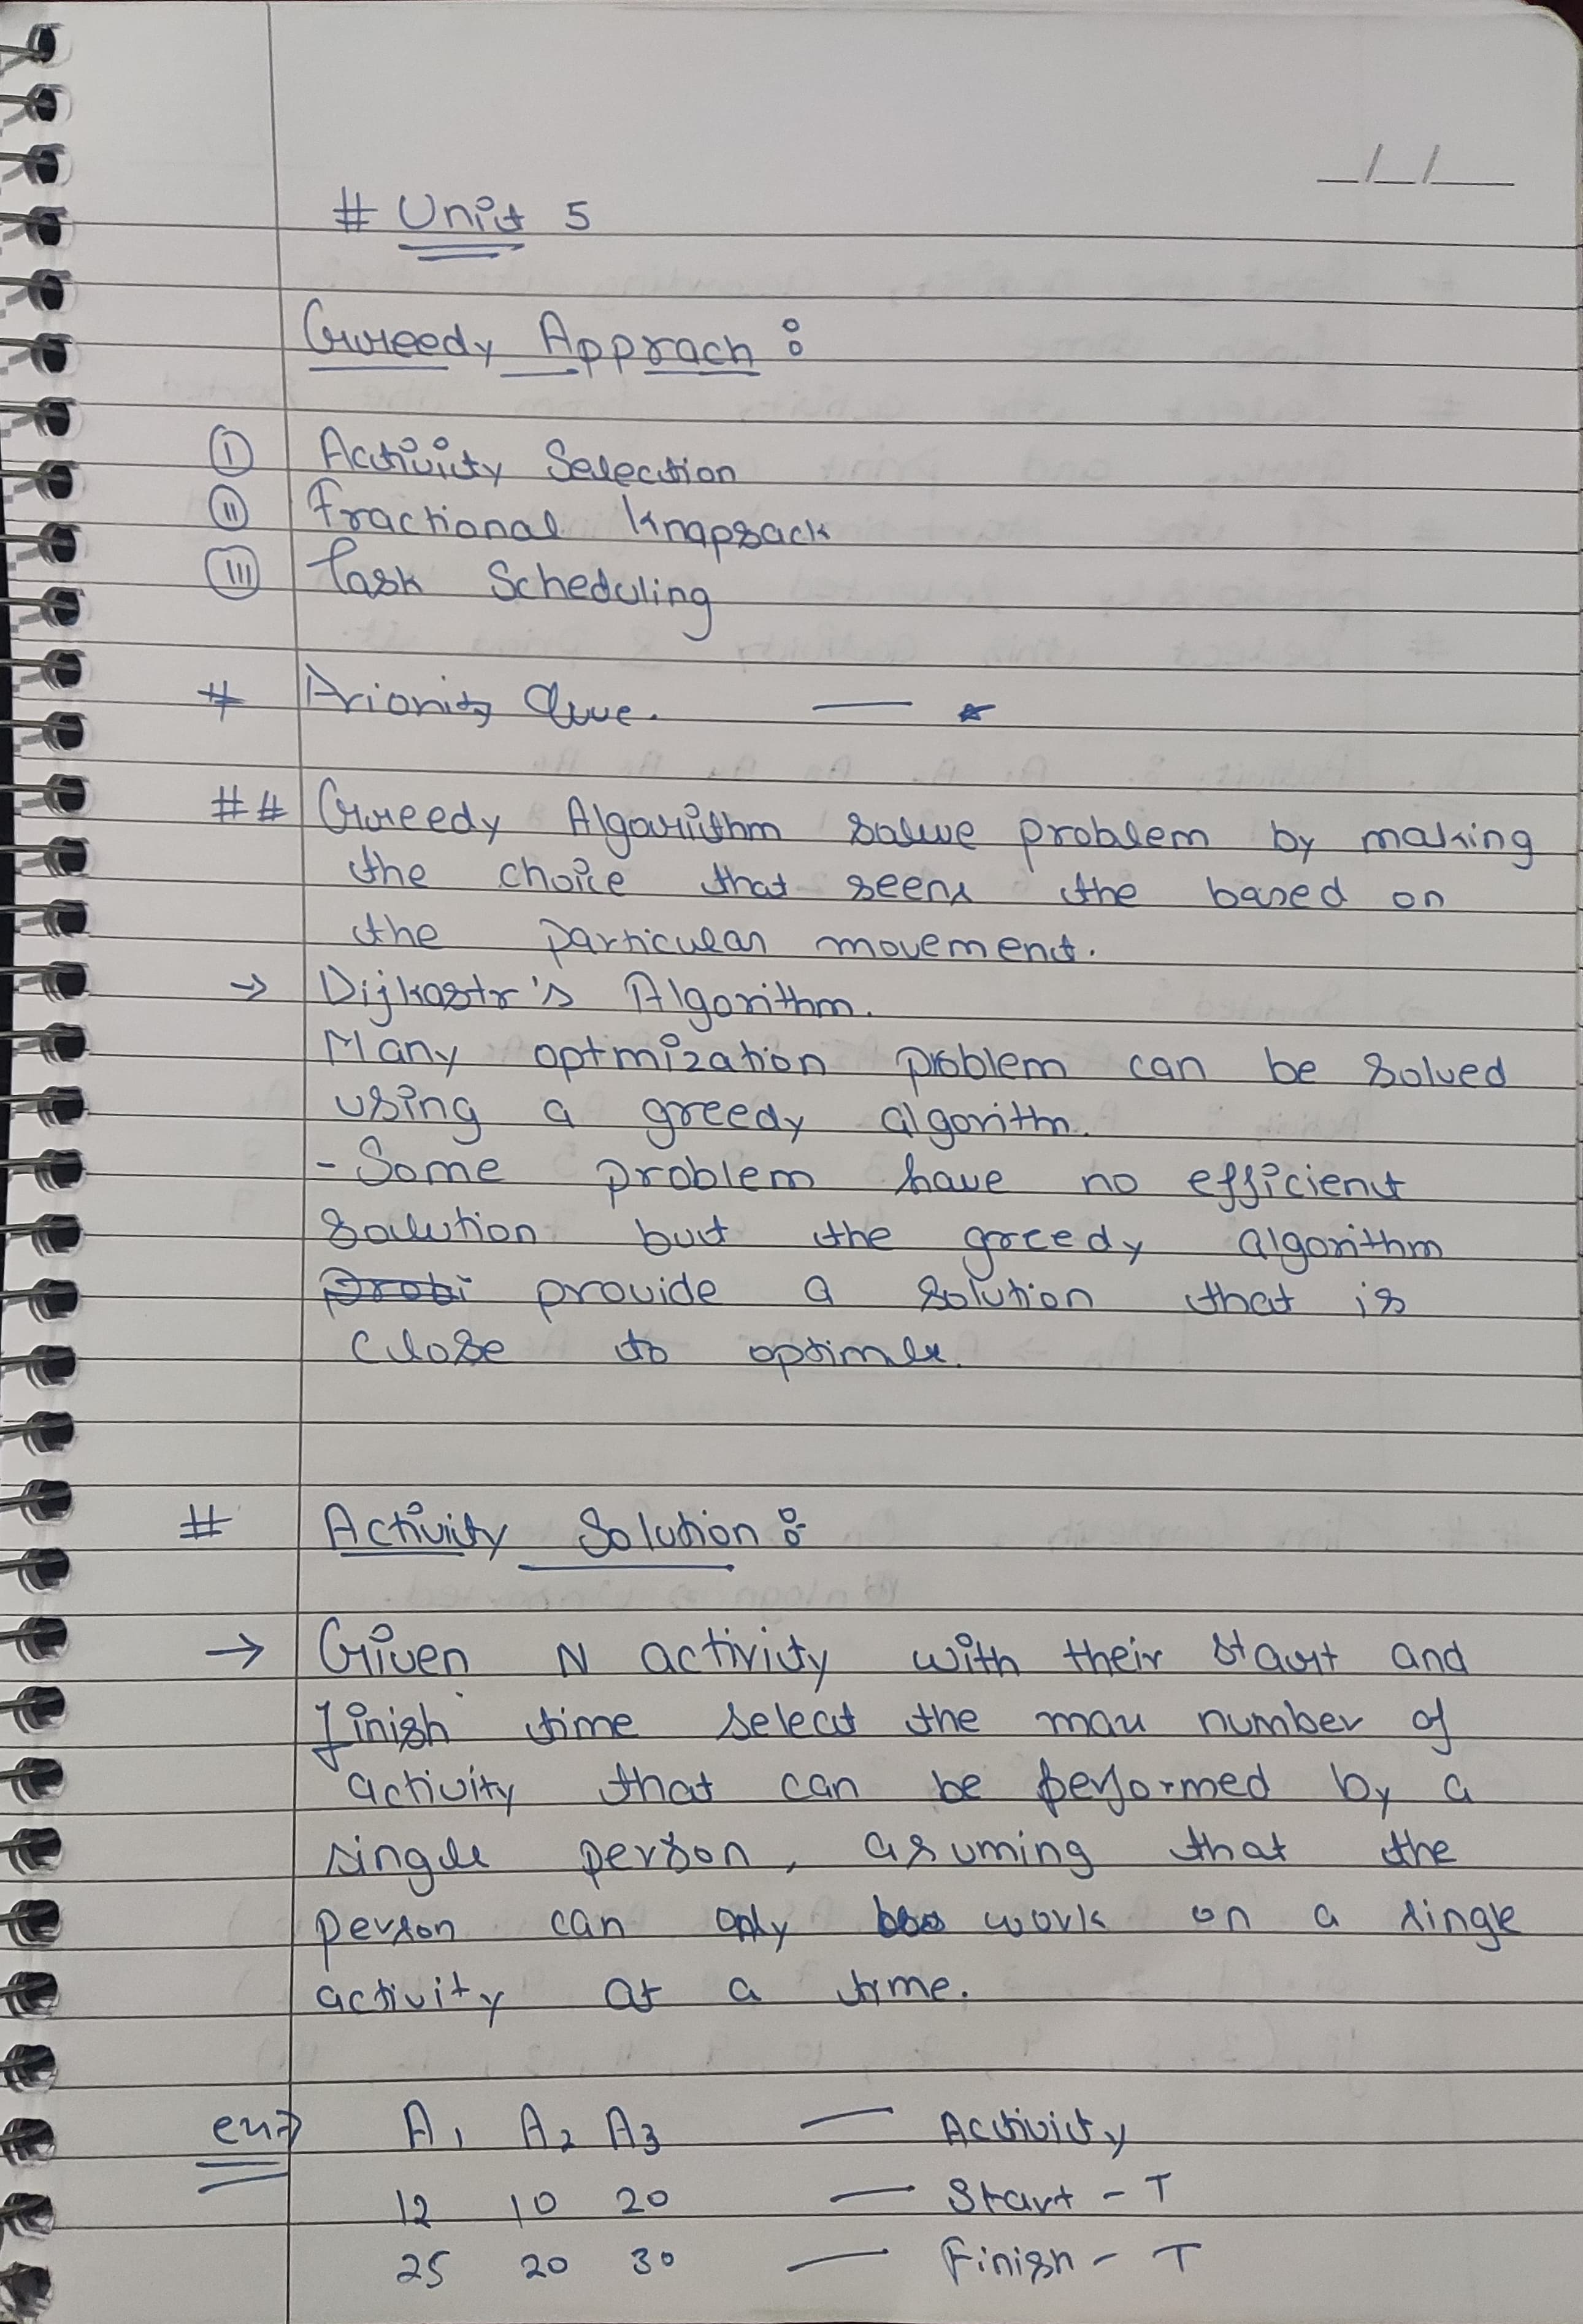 _/_/_
# Unit 5
Greedy Apprach :
(I) Activity Selection
(II) Fractional Knapsack
(III) Task Scheduling
# Priority Que. — *
## Greedy Algorithm solve problem by making
the choice that seens the based on
the particular movement.
→ Dijkastr's Algorithm.
Many optmization problem can be solved
using a greedy algorithm.
- Some problem have no efficient
solution but the greedy algorithm
provide a solution that is
close to optimle.
# Activity Solution :
→ Given N activity with their start and
finish time select the max number of
activity that can be performed by a
single person, asuming that the
person can only work on a single
activity at a time.
ex→ A1 A2 A3 — Activity
12 10 20 — Start - T
25 20 30 — Finish - T